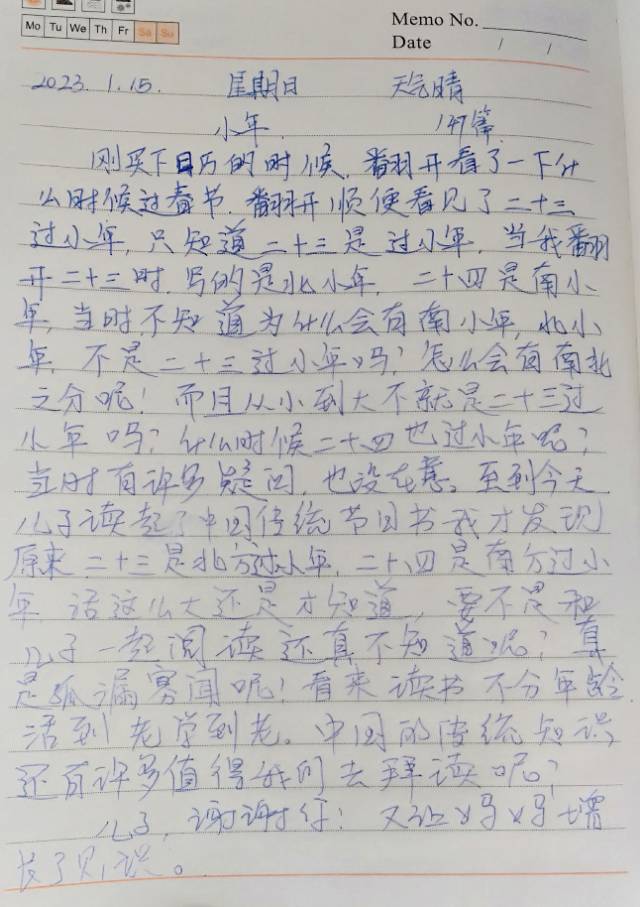 Mo Tu We Th Fr Sa Su
Memo No.
Date / /
2023.1.15. 星期日 天气晴
小年 147篇
刚买下日历的时候,翻开看了一下什
么时候过春节,翻开顺便看见了二十三
过小年,只知道二十三是过小年,当我翻
开二十三时,写的是北小年,二十四是南小
年,当时不知道为什么会有南小年,北小
年,不是二十三过小年吗?怎么会有南北
之分呢!而且从小到大不就是二十三过
小年吗?什么时候二十四也过小年呢?
当时有许多疑问,也没在意。至到今天
儿子读起了中国传统节日书我才发现
原来二十三是北方过小年,二十四是南方过小
年 活这么大还是才知道,要不是和
儿子一起阅读还真不知道呢?真
是孤漏寡闻呢!看来读书不分年龄
活到老学到老。中国的传统知识
还有许多值得我们去拜读呢?
儿子,谢谢你!又让妈妈增
长了见识。